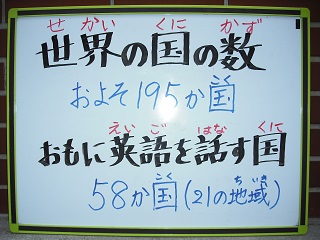 せ かい くに かず
世界の国の数
およそ195か国
えい ご はな くに
おもに英語を話す国
こく ちいき
58か国(21の地域)